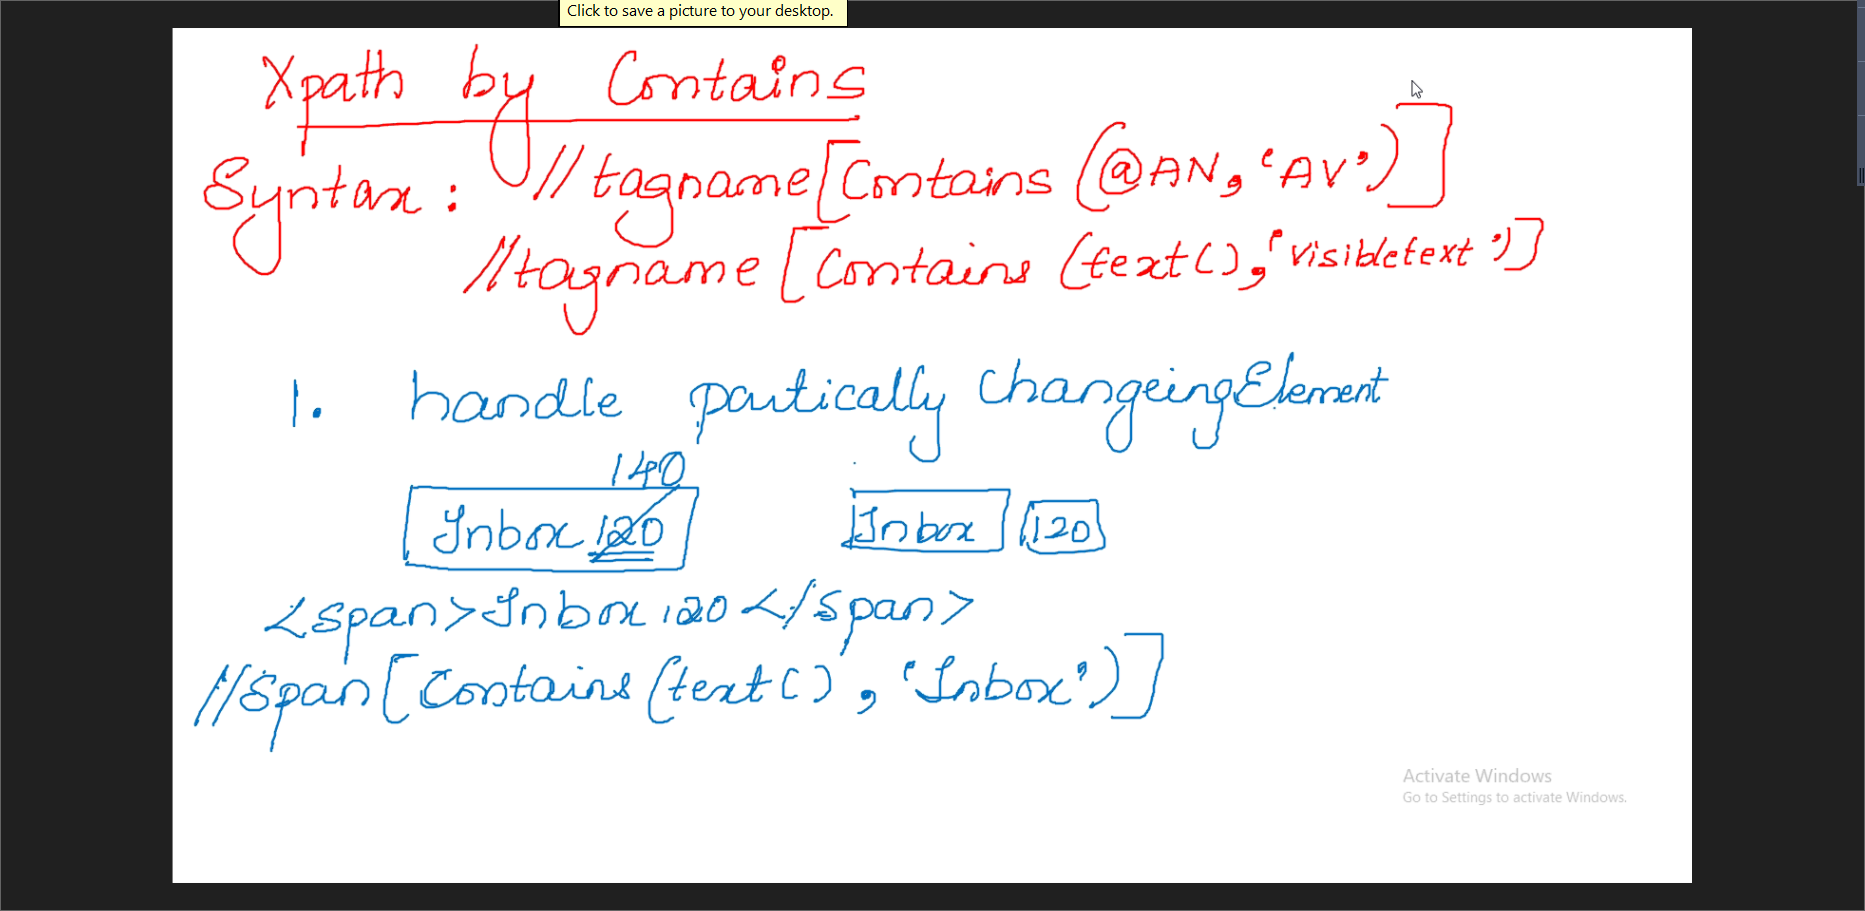 Click to save a picture to your desktop.
Xpath by Contains
Syntax: //tagname[Contains(@AN, 'AV')]
//tagname[Contains(text(), 'visibletext')]
1. handle partically changeingElement
140
Inbox 120 Inbox 120
<span>Inbox 120</span>
//span[Contains(text(), 'Inbox')]
Activate Windows
Go to Settings to activate Windows.